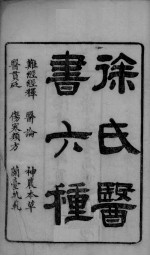 徐氏醫
書六種
難經經釋
醫學源流論
神農本草
醫貫砭
傷寒類方
蘭臺軌範